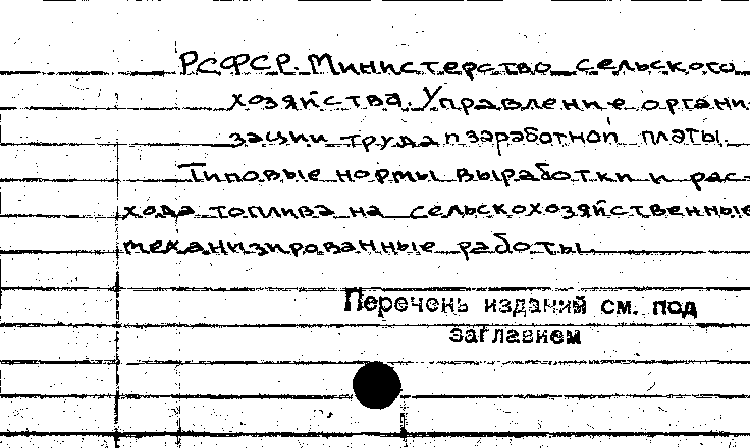 РСФСР. Министерство сельского
хозяйства. Управление органи
зации труда и заработной платы.
Типовые нормы выработки и рас-
хода топлива на сельскохозяйственные
механизированные работы.
Перечень изданий см. под
заглавием